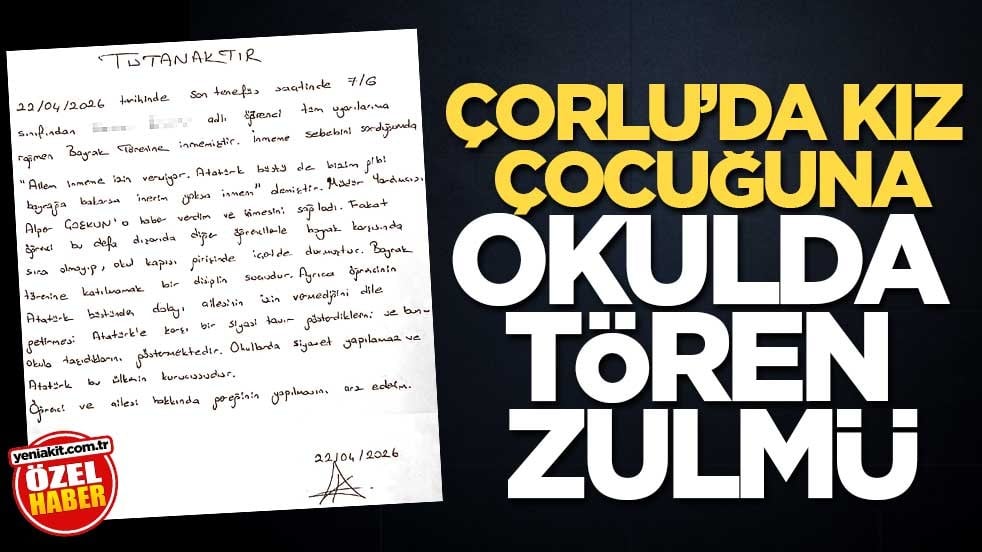 TUTANAKTIR
22/04/2026 tarihinde son tenefüs saatinde 7/G
sınıfından adlı öğrenci tüm uyarılarıma
rağmen Bayrak Törenine inmemiştir. İnmeme sebebini sorduğumda
"Ailem inmeme izin vermiyor. Atatürk büstü de bizim gibi
bayrağa bakarsa inerim yoksa inmem" demiştir. Müdür Yardımcısı
Alper 'a haber verdim ve inmesini sağladı. Fakat
öğrenci bu defa dışarıda diğer öğrencilerle bayrak karşısında
sıra olmayıp, okul kapısı girişinde içeride durmuştur. Bayrak
törenine katılmamak bir disiplin suçudur. Ayrıca öğrencinin
Atatürk büstünden dolayı ailesinin izin vermediğini dile
getirmesi Atatürk'e karşı bir siyasi tavır gösterdiklerini ve bunu
okula taşıdıklarını göstermektedir. Okullarda siyaset yapılamaz ve
Atatürk bu ülkenin kurucusudur.
Öğrenci ve ailesi hakkında gereğinin yapılmasını arz ederim.
22/04/2026
yeniakit.com.tr
ÖZEL
HABER
ÇORLU'DA KIZ
ÇOCUĞUNA
OKULDA
TÖREN
ZULMÜ